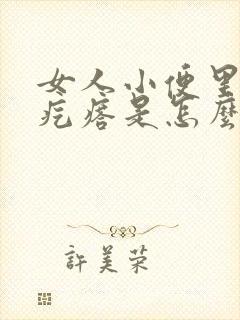 女人小便里
疙瘩是怎麼
許美荣